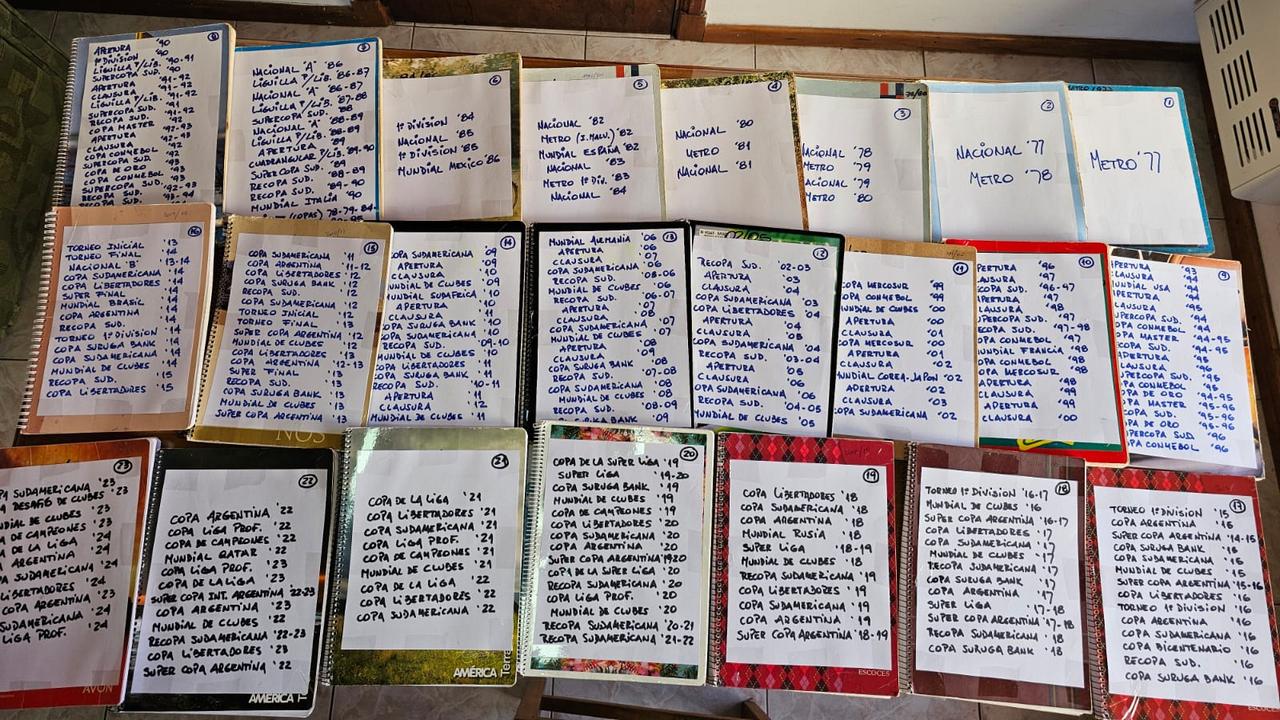 8
APERTURA '90
1ª DIVISION '90
LIGUILLA P/LIB. '90-91
SUPERCOPA SUD. '91
APERTURA '91-92
CLAUSURA '91-92
LIGUILLA P/LIB. '91-92
SUPERCOPA SUD. '91
RECOPA SUD.
COPA MASTER '92
APERTURA '92-93
CLAUSURA '92-93
COPA CONMEBOL '92
SUPERCOPA SUD.
COPA DE ORO '93
COPA CONMEBOL '93
RECOPA SUD. '93
SUPERCOPA SUD.
7
NACIONAL "A" '86
LIGUILLA P/LIB. '86-87
NACIONAL "A" '86-87
LIGUILLA P/LIB. '87-88
SUPERCOPA SUD. '88
NACIONAL "A" '88-89
LIGUILLA P/LIB. '88-89
APERTURA '89
CUADRANGULAR P/LIB. '89-90
SUPER COPA SUD. '89
RECOPA SUD.
RECOPA SUD. '89-90
MUNDIAL ITALIA '90
(COPAS) '78-79, 84-
6
1ª DIVISION '84
NACIONAL '85
1ª DIVISION '85
MUNDIAL MEXICO '86
5
NACIONAL '82
METRO (J. MALV.) '82
MUNDIAL ESPAÑA '82
NACIONAL '83
METRO 1ª DIV. '83
NACIONAL '84
4
NACIONAL '80
METRO '81
NACIONAL '81
3
NACIONAL '78
METRO '79
NACIONAL '79
METRO '80
2
NACIONAL '77
METRO '78
1
METRO '77
16
TORNEO INICIAL '13
TORNEO FINAL '14
NACIONAL "B" '13-14
COPA SUDAMERICANA '14
COPA LIBERTADORES '14
SUPER FINAL '14
MUNDIAL BRASIL '14
COPA ARGENTINA '14
RECOPA SUD. '14
TORNEO 1ª DIVISION '14
COPA SURUGA BANK '14
COPA SUDAMERICANA '14
MUNDIAL DE CLUBES '14
RECOPA SUD. '15
COPA LIBERTADORES '15
15
COPA SUDAMERICANA '11
COPA ARGENTINA '11-12
COPA LIBERTADORES '12
COPA SURUGA BANK '12
RECOPA SUD. '12
COPA SUDAMERICANA '12
TORNEO INICIAL '12
TORNEO FINAL '13
SUPER COPA ARGENTINA '12
MUNDIAL DE CLUBES '12
COPA LIBERTADORES '13
COPA ARGENTINA '12-13
SUPER FINAL '13
RECOPA SUD. '13
COPA SURUGA BANK '13
MUNDIAL DE CLUBES '13
SUPER COPA ARGENTINA '13
NOS
14
COPA SUDAMERICANA '09
APERTURA '09
CLAUSURA '10
MUNDIAL DE CLUBES '09
MUNDIAL SUDAFRICA '10
APERTURA '10
CLAUSURA '11
COPA SURUGA BANK '10
RECOPA SUD. '09-10
MUNDIAL DE CLUBES '10
COPA LIBERTADORES '11
COPA SURUGA BANK '11
RECOPA SUD. '10-11
APERTURA '11
CLAUSURA
MUNDIAL DE CLUBES '11
13
MUNDIAL ALEMANIA '06
APERTURA '06
CLAUSURA '07
COPA SUDAMERICANA '06
RECOPA SUD.
MUNDIAL DE CLUBES '06
RECOPA SUD. '06-07
APERTURA '07
CLAUSURA '08
COPA SUDAMERICANA '07
MUNDIAL DE CLUBES '07
APERTURA '08
CLAUSURA '09
RECOPA SUD. '07-08
COPA SUDAMERICANA '08
MUNDIAL DE CLUBES '08
RECOPA SUD. '08-09
COPA SURUGA BANK '09
12
RECOPA SUD. '02-03
APERTURA '03
CLAUSURA '04
COPA SUDAMERICANA '03
COPA LIBERTADORES '04
APERTURA '04
CLAUSURA
COPA SUDAMERICANA '04
RECOPA SUD. '03-04
APERTURA '05
CLAUSURA '06
COPA SUDAMERICANA '05
RECOPA SUD. '04-05
MUNDIAL DE CLUBES '05
11
COPA MERCOSUR '99
COPA CONMEBOL '99
MUNDIAL DE CLUBES '00
APERTURA '00
CLAUSURA '01
COPA MERCOSUR '00
APERTURA '01
CLAUSURA '02
MUNDIAL COREA-JAPON '02
APERTURA '02
CLAUSURA '03
COPA SUDAMERICANA '02
10
APERTURA '96
RECOPA SUD. '96-97
APERTURA '97
CLAUSURA '98
SUPERCOPA SUD. '97
RECOPA SUD. '97-98
COPA CONMEBOL '97
MUNDIAL FRANCIA '98
COPA CONMEBOL '98
COPA MERCOSUR '98
APERTURA '98
CLAUSURA '99
APERTURA '99
CLAUSURA '00
9
APERTURA '93
CLAUSURA '94
MUNDIAL USA '94
APERTURA '94
CLAUSURA '95
SUPERCOPA SUD.
COPA CONMEBOL '94
COPA MASTER '94-95
RECOPA SUD. '94-95
APERTURA '95
CLAUSURA '96
SUPERCOPA SUD.
COPA CONMEBOL
COPA DE ORO '94-95
COPA MASTER '95-96
RECOPA SUD.
COPA DE ORO '95-96
SUPERCOPA SUD. '96
COPA CONMEBOL '96
23
COPA SUDAMERICANA '23
COPA DESAFIO DE CLUBES '23
MUNDIAL DE CLUBES '23
DE CAMPEONES '23
DE LA LIGA '24
ARGENTINA '24
SUDAMERICANA '24
LIBERTADORES '24
COPA ARGENTINA '23
COPA SUDAMERICANA '24
LIGA PROF. '24
AVON
22
COPA ARGENTINA '22
COPA LIGA PROF. '22
COPA DE CAMPEONES '22
MUNDIAL QATAR '22
COPA LIGA PROF. '23
COPA DE LA LIGA '23
SUPER COPA INT. ARGENTINA '22-23
COPA ARGENTINA '23
MUNDIAL DE CLUBES '22
RECOPA SUDAMERICANA '22-23
COPA LIBERTADORES '23
SUPER COPA ARGENTINA '22
AMÉRICA
21
COPA DE LA LIGA '21
COPA LIBERTADORES '21
COPA SUDAMERICANA '21
COPA LIGA PROF. '21
COPA DE CAMPEONES '21
MUNDIAL DE CLUBES '21
COPA DE LA LIGA '22
COPA LIBERTADORES '22
COPA SUDAMERICANA '22
AMÉRICA
20
COPA DE LA SUPER LIGA '19
SUPER LIGA '19-20
COPA SURUGA BANK '19
MUNDIAL DE CLUBES '19
COPA DE CAMPEONES '19
COPA LIBERTADORES '20
COPA SUDAMERICANA '20
COPA ARGENTINA '20
SUPER COPA ARGENTINA 1920
COPA DE LA SUPER LIGA '20
RECOPA SUDAMERICANA '20
COPA LIGA PROF. '20
MUNDIAL DE CLUBES '20
RECOPA SUDAMERICANA '20-21
RECOPA SUDAMERICANA '21-22
19
COPA LIBERTADORES '18
COPA SUDAMERICANA '18
COPA ARGENTINA '18
MUNDIAL RUSIA '18
SUPER LIGA '18-19
MUNDIAL DE CLUBES '18
RECOPA SUDAMERICANA '19
COPA LIBERTADORES '19
COPA SUDAMERICANA '19
COPA ARGENTINA '19
SUPER COPA ARGENTINA '18-19
ESCOCES
18
TORNEO 1ª DIVISION '16-17
MUNDIAL DE CLUBES '16
SUPER COPA ARGENTINA '16-17
COPA LIBERTADORES '17
COPA SUDAMERICANA '17
MUNDIAL DE CLUBES '17
RECOPA SUDAMERICANA '17
COPA SURUGA BANK '17
COPA ARGENTINA '17
SUPER LIGA '17-18
SUPER COPA ARGENTINA '17-18
RECOPA SUDAMERICANA '18
COPA SURUGA BANK '18
17
TORNEO 1ª DIVISION '15
COPA ARGENTINA '15
SUPER COPA ARGENTINA '14-15
COPA SURUGA BANK '15
COPA SUDAMERICANA '15
MUNDIAL DE CLUBES '15
SUPER COPA ARGENTINA '15-16
COPA LIBERTADORES '16
TORNEO 1ª DIVISION '16
COPA ARGENTINA '16
COPA SUDAMERICANA '16
COPA BICENTENARIO '16
RECOPA SUD. '16
COPA SURUGA BANK '16